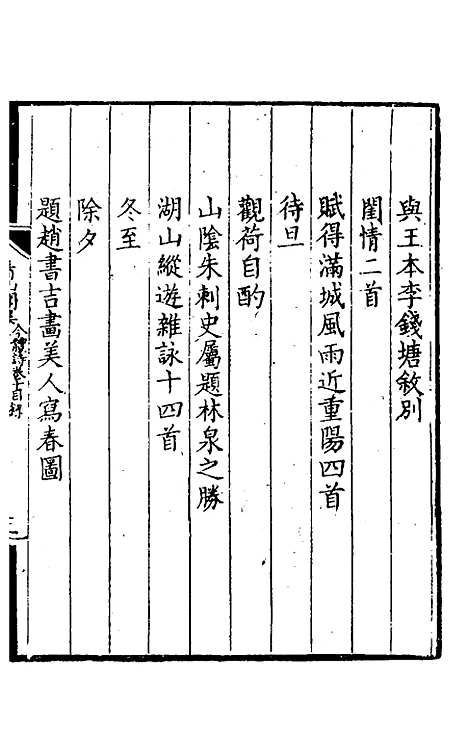 與王本李錢塘敘別
閨情二首
賦得滿城風雨近重陽四首
待旦
觀荷自酌
山陰朱刺史屬題林泉之勝
湖山縱遊雜詠十四首
冬至
除夕
題趙書吉畫美人寫春圖
今體詩卷十目錄